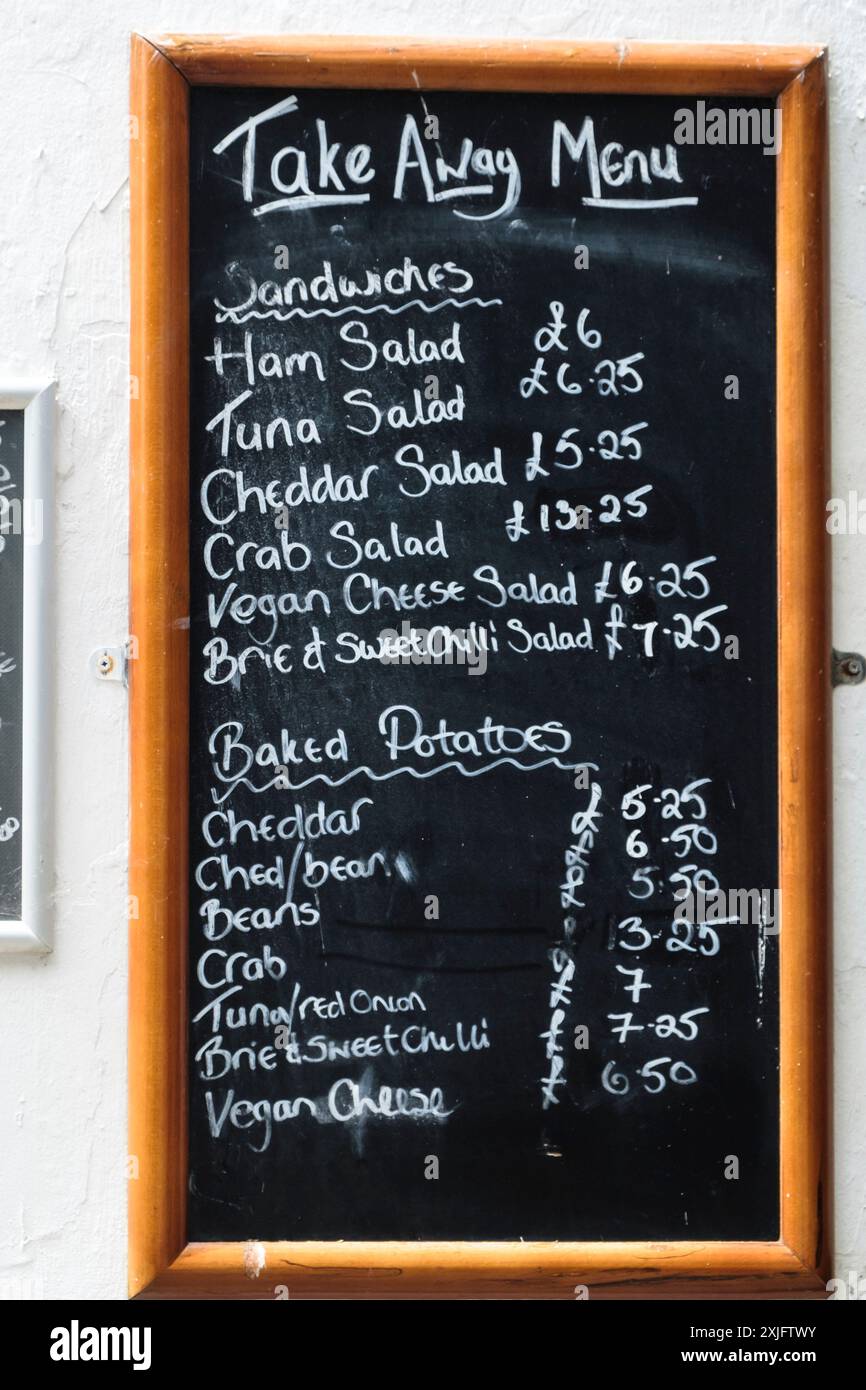 Take Away Menu
Sandwiches
Ham Salad £6
Tuna Salad £6.25
Cheddar Salad £5.25
Crab Salad £13.25
Vegan Cheese Salad £6.25
Brie & Sweet Chilli Salad £7.25
Baked Potatoes
Cheddar £ 5.25
Ched/bean £ 6.50
Beans £ 5.50
Crab £ 13.25
Tuna/red Onion £ 7
Brie & Sweet Chilli £ 7.25
Vegan Cheese £ 6.50
alamy
Image ID: 2XJFTWY
www.alamy.com